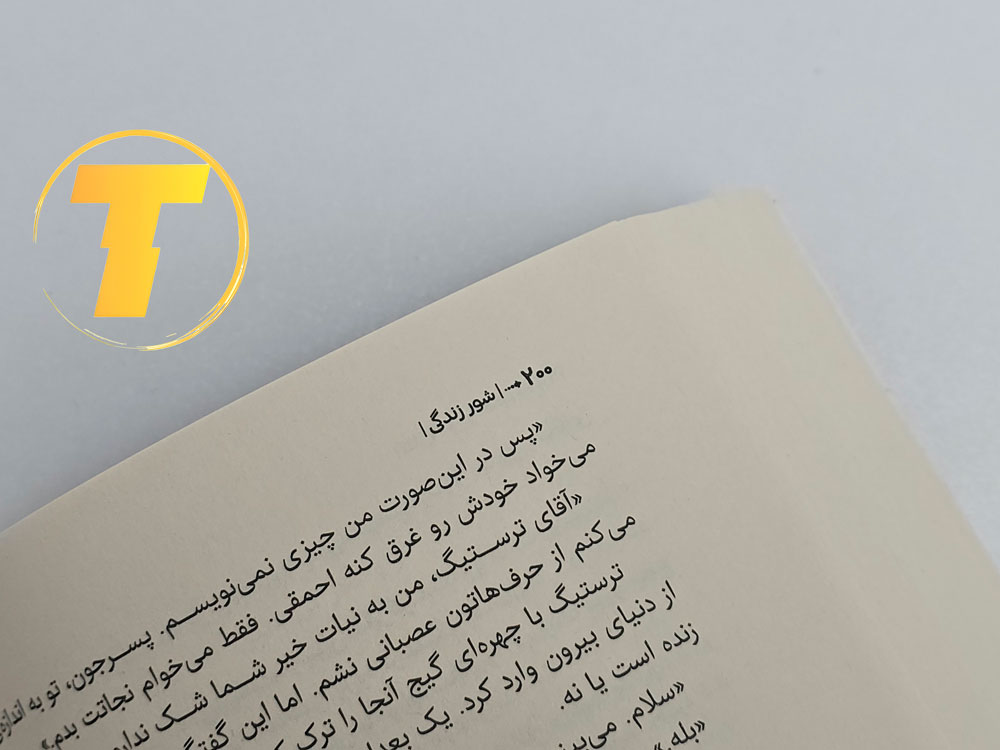 T
۲۰۰ ...| شور زندگی |
«پس در این‌صورت من چیزی نمی‌نویسم. پسرجون، تو به اندازه‌ی
می‌خواد خودش رو غرق کنه احمقی. فقط می‌خوام نجاتت بدم.»
«آقای ترستیگ، من به نیات خیر شما شک ندارم
می‌کنم از حرف‌هاتون عصبانی نشم. اما این
ترستیگ با چهره‌ای گیج آنجا را ترک
از دنیای بیرون وارد کرد. یک
زنده است یا نه.
«سلام.
«بله.